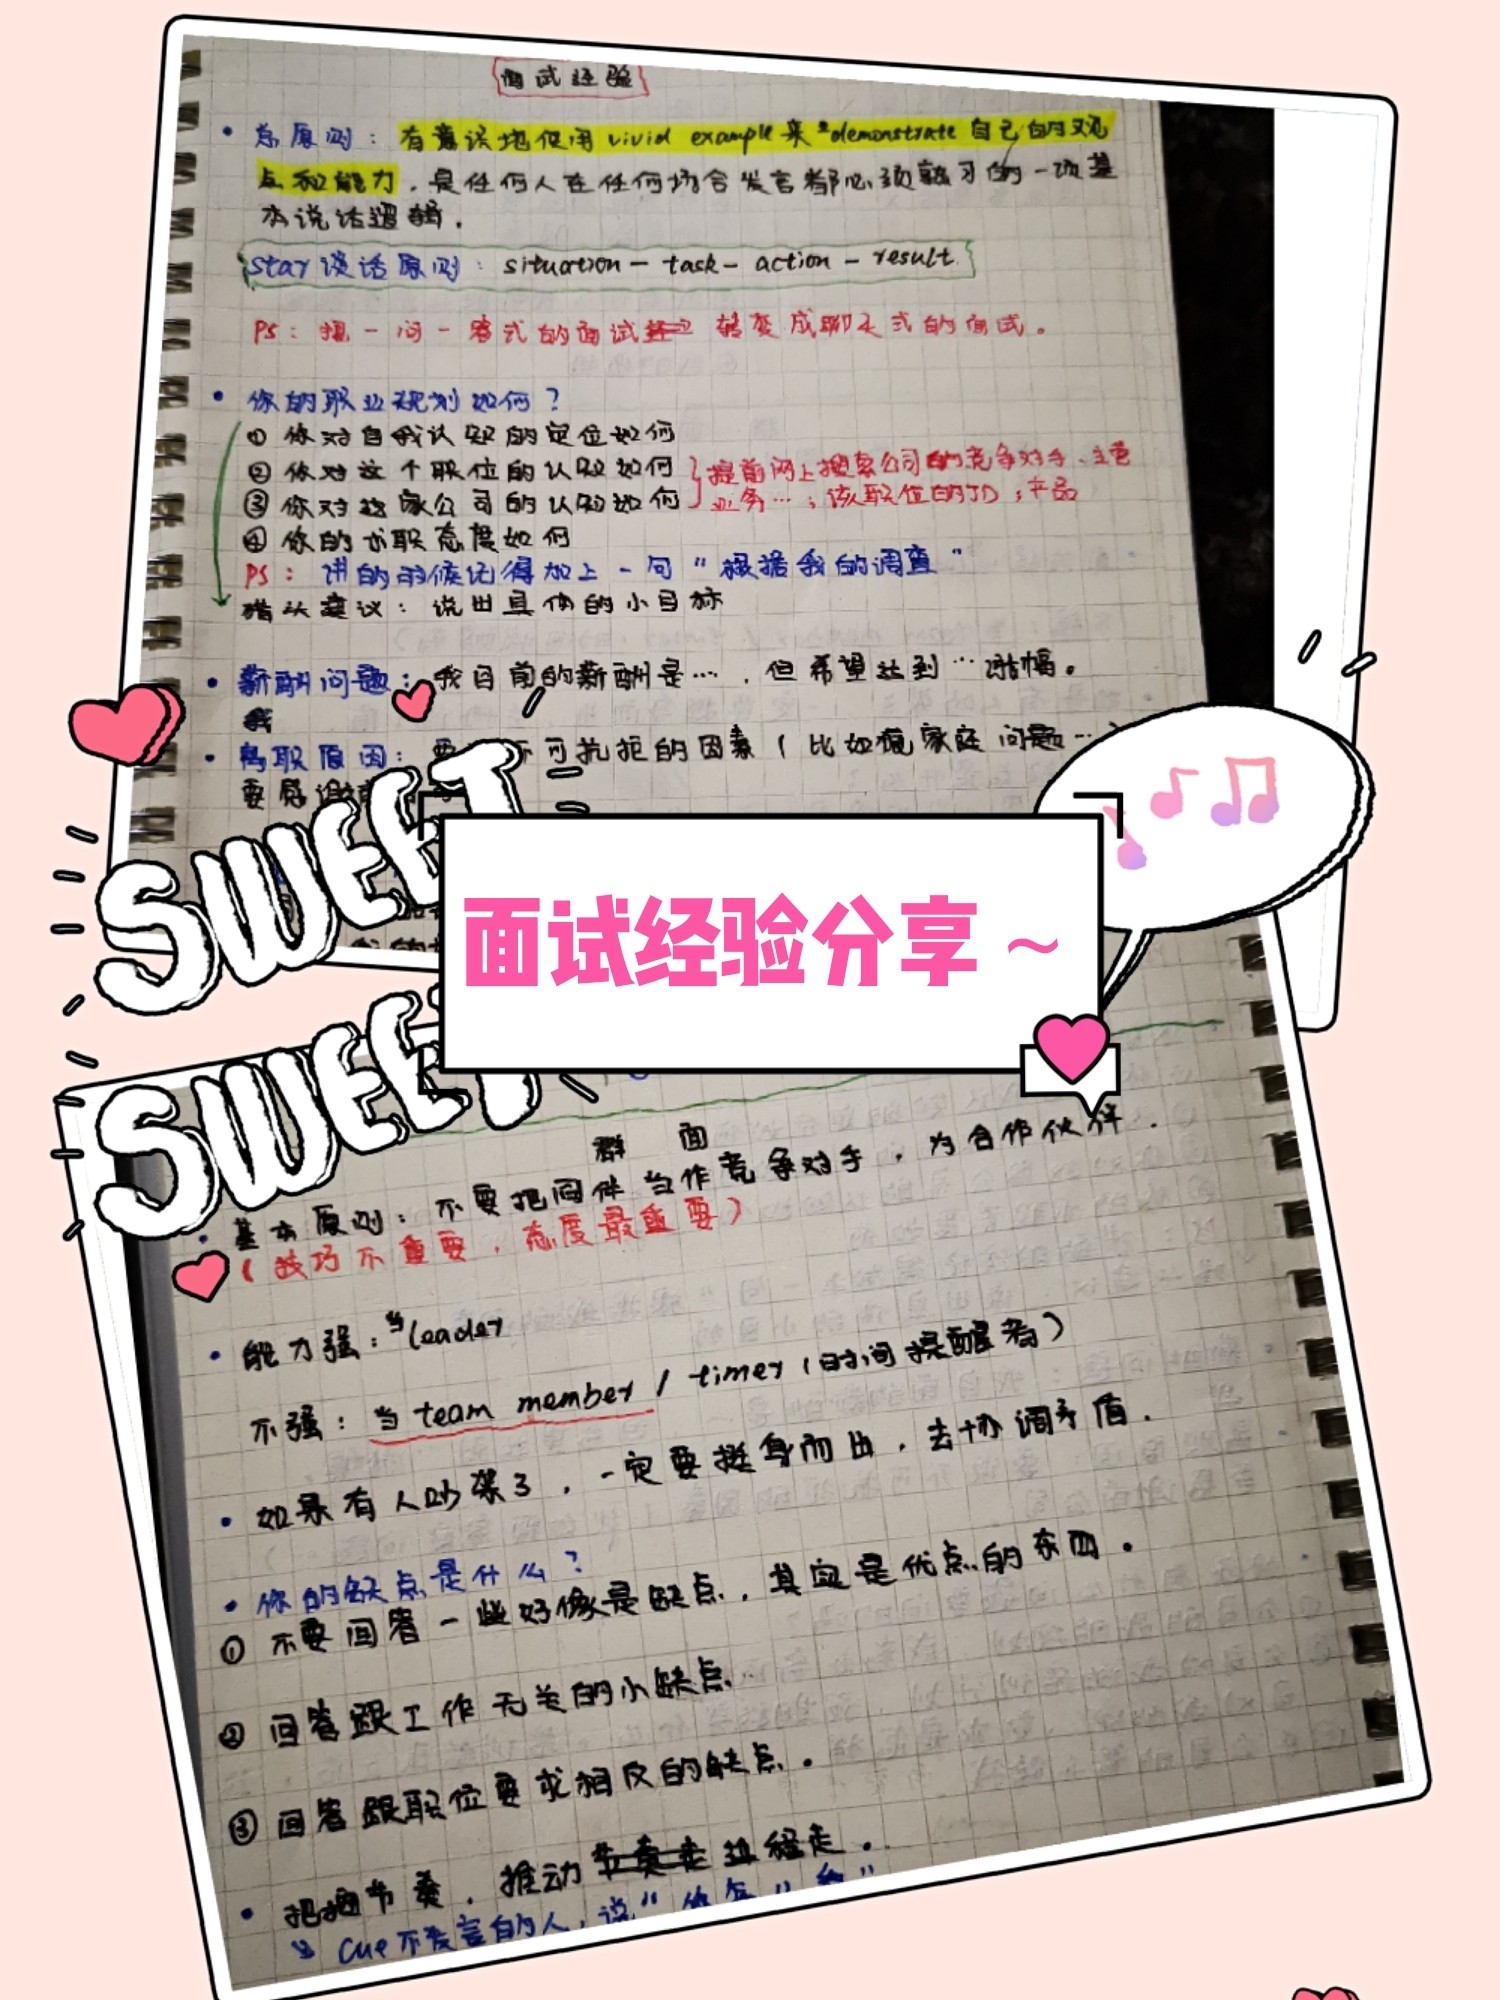 面试经验
• 总原则：有意识地使用 vivid example 来 demonstrate 自己的观
点和能力，是任何人在任何场合发言都必须熟习的一项基
本说话逻辑．
star谈话原则：situation - task - action - result
PS：把一问一答式的面试 转变成聊天式的面试。
• 你的职业规划如何？
① 你对自我认知的定位如何
② 你对这个职位的认知如何
③ 你对这家公司的认知如何
提前网上搜索公司的竞争对手、主营
业务…；该职位的JD；产品
④ 你的求职态度如何
PS：讲的时候记得加上一句"根据我的调查"
猎头建议：说出具体的小目标
• 薪酬问题：我目前的薪酬是…，但希望达到…涨幅。
我
• 离职原因：要 不可抗拒的因素（比如说家庭问题…
要感谢
SWEET
SWEET
面试经验分享～
群 面
• 基本原则：不要把同伴当作竞争对手，为合作伙伴．
（技巧不重要，态度最重要）
• 能力强：当leader
不强：当 team member / timer（时间提醒者）
• 如果有人吵架了，一定要挺身而出，去协调矛盾．
• 你的缺点是什么？
① 不要回答一些好像是缺点，其实是优点的东西．
② 回答跟工作无关的小缺点
③ 回答跟职位要求相反的缺点．
• 把握节奏，推动 过程走．
cue不发言的人，说"